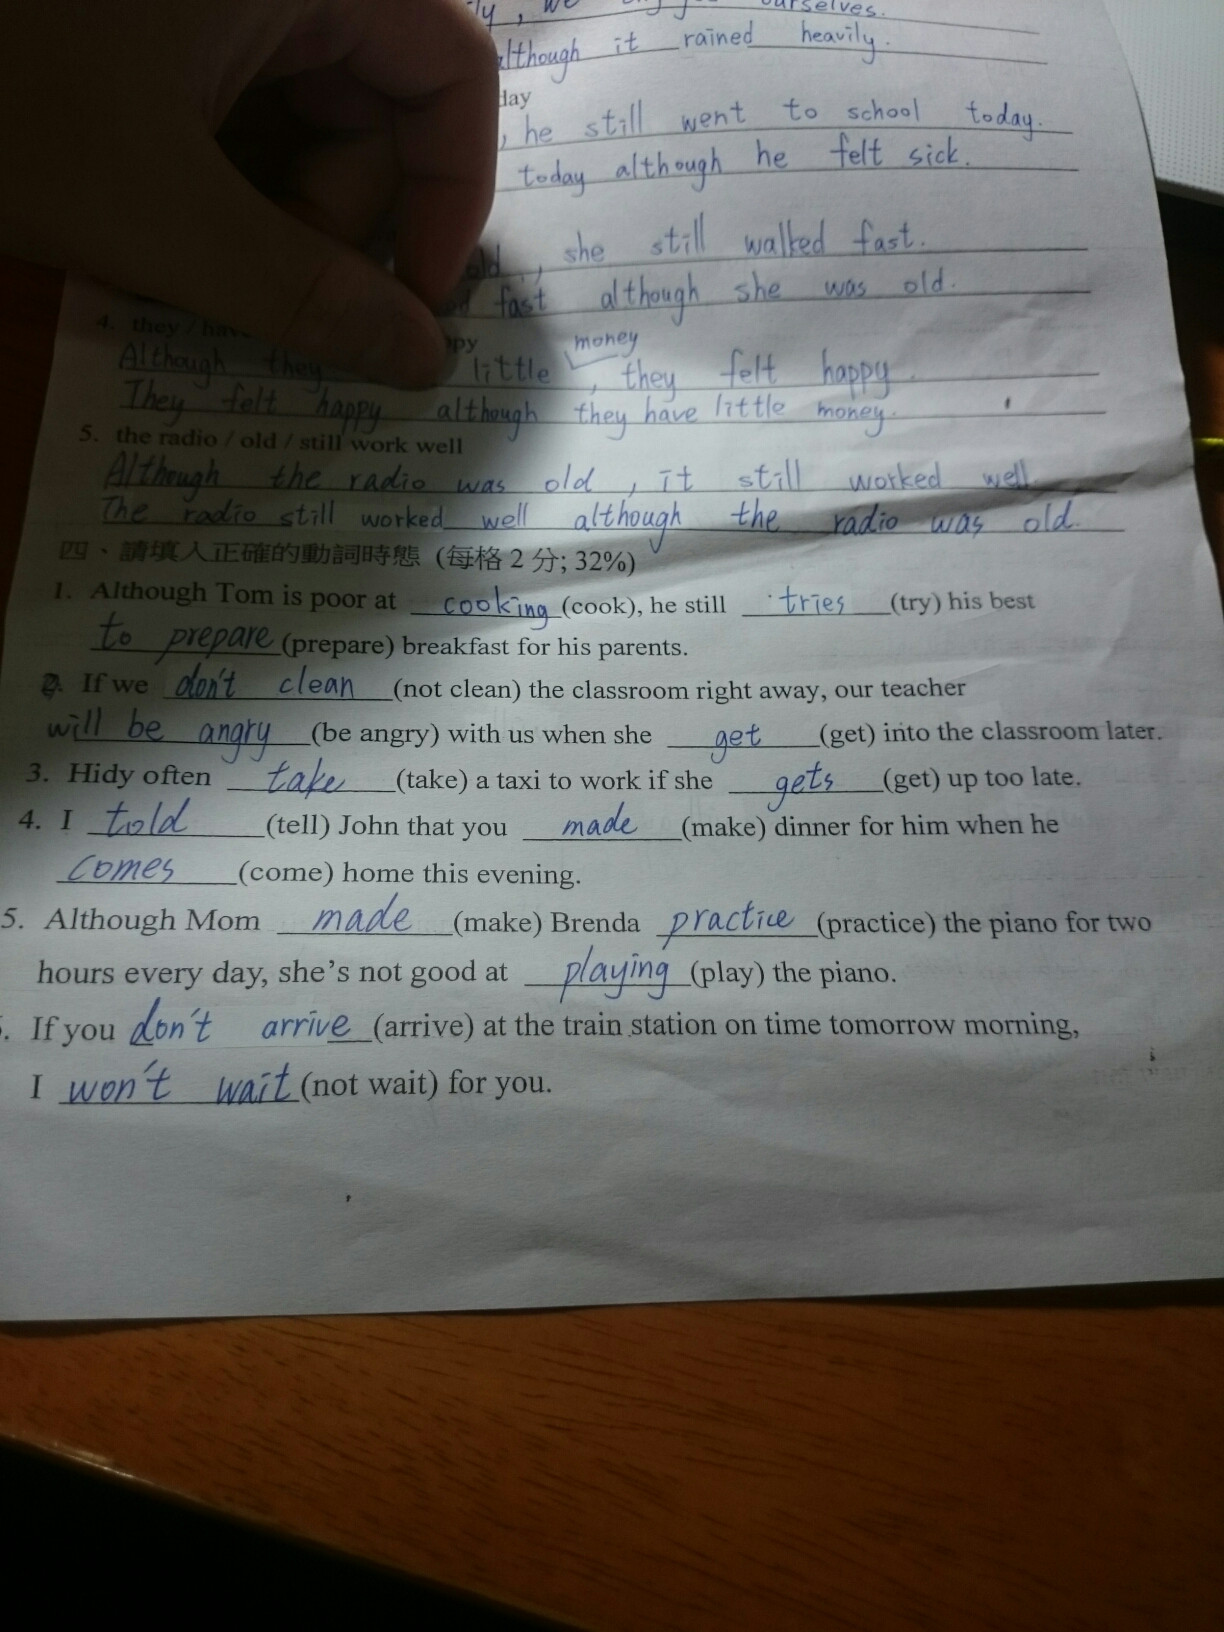 ourselves.
although it rained heavily.
day
, he still went to school today.
today although he felt sick.
old, she still walked fast.
fast although she was old.
4. they / have
money
Although they little , they felt happy.
They felt happy although they have little money.
5. the radio / old / still work well
Although the radio was old , it still worked well.
The radio still worked well although the radio was old.
四、請填入正確的動詞時態 (每格 2 分; 32%)
1. Although Tom is poor at cooking (cook), he still tries (try) his best
to prepare (prepare) breakfast for his parents.
2. If we don't clean (not clean) the classroom right away, our teacher
will be angry (be angry) with us when she get (get) into the classroom later.
3. Hidy often take (take) a taxi to work if she gets (get) up too late.
4. I told (tell) John that you made (make) dinner for him when he
comes (come) home this evening.
5. Although Mom made (make) Brenda practice (practice) the piano for two
hours every day, she's not good at playing (play) the piano.
. If you don't arrive (arrive) at the train station on time tomorrow morning,
I won't wait (not wait) for you.